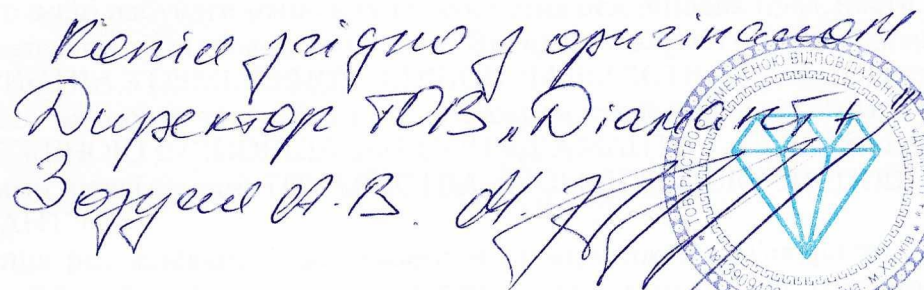 Копія згідно з оригіналом
Директор ТОВ „Діамант+"
Зозуля А.В.
ТОВАРИСТВО З ОБМЕЖЕНОЮ ВІДПОВІДАЛЬНІСТЮ
м. Харків